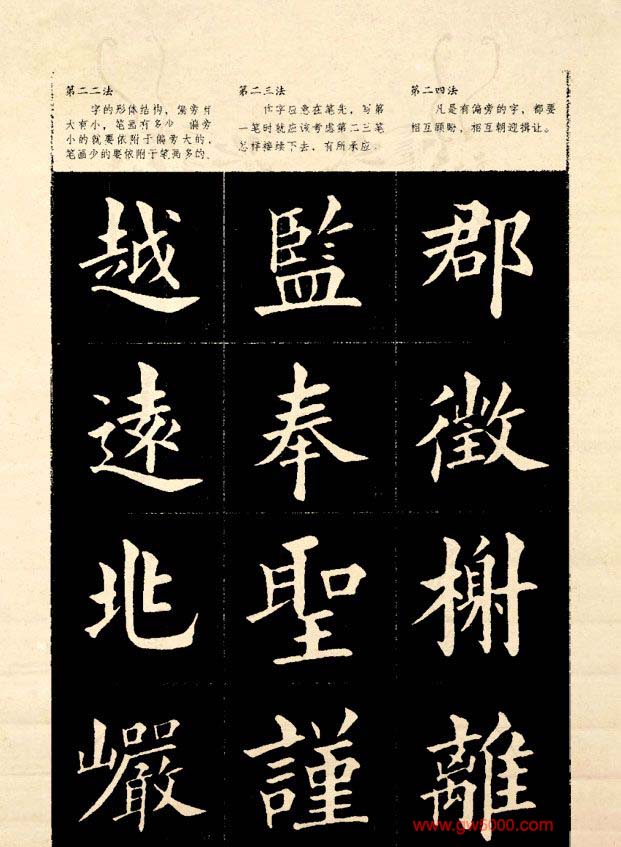 第二二法
字的形体结构，偏旁有
大有小，笔画有多少，偏旁
小的就要依附于偏旁大的，
笔画少的要依附于笔画多的。
第二三法
作字应意在笔先，写第
一笔时就应该考虑第二三笔
怎样接续下去，有所承应。
第二四法
凡是有偏旁的字，都要
相互顾盼，相互朝迎揖让。
越 監 郡
遠 奉 徵
北 聖 榭
巗 謹 離
www.gw5000.com